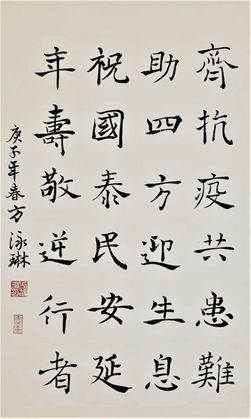 齊抗疫共患難
助四方迎生息
祝國泰民安延
年壽敬逆行者
庚子年春方泳琳